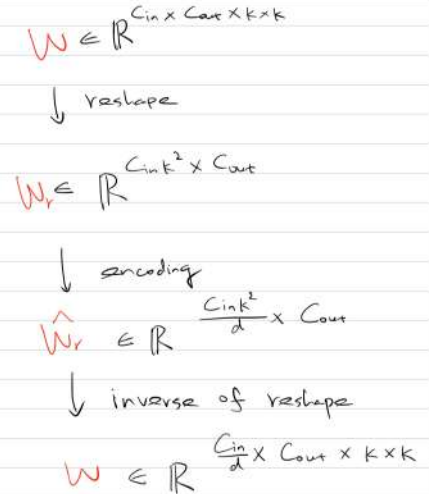 W ∈ ℝ^{Cin × Cout × k×k}
↓ reshape
Wᵣ ∈ ℝ^{Cin k² × Cout}
↓ encoding
Ŵᵣ ∈ ℝ^{\frac{Cin k²}{d} × Cout}
↓ inverse of reshape
W ∈ ℝ^{\frac{Cin}{d} × Cout × k×k}